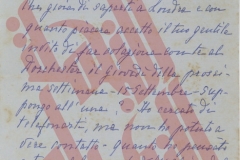 che gioia di saperti a Londra e con
quanto piacere accetto il tuo gentile
invito di far colazione con te al
Dorchester il Giovedì della prossi-
ma settimana - 15 Settembre - sup-
pongo all'una? Ho cercato di
telefonarti, ma non ho potuto a-
vere contatto - quanto ho pensato